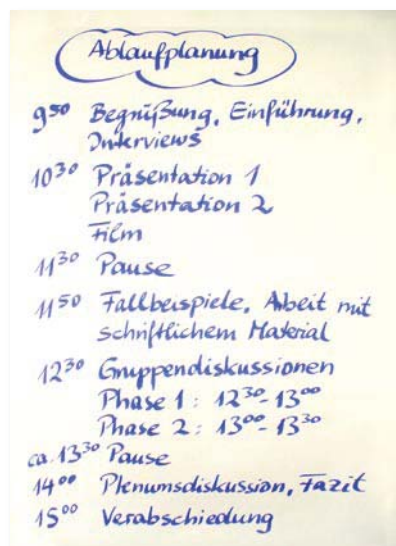 Ablaufplanung
9⁵⁰ Begrüßung, Einführung,
Interviews
10³⁰ Präsentation 1
Präsentation 2
Film
11³⁰ Pause
11⁵⁰ Fallbeispiele, Arbeit mit
schriftlichem Material
12³⁰ Gruppendiskussionen
Phase 1: 12³⁰-13⁰⁰
Phase 2: 13⁰⁰-13³⁰
ca. 13³⁰ Pause
14⁰⁰ Plenumsdiskussion, Fazit
15⁰⁰ Verabschiedung